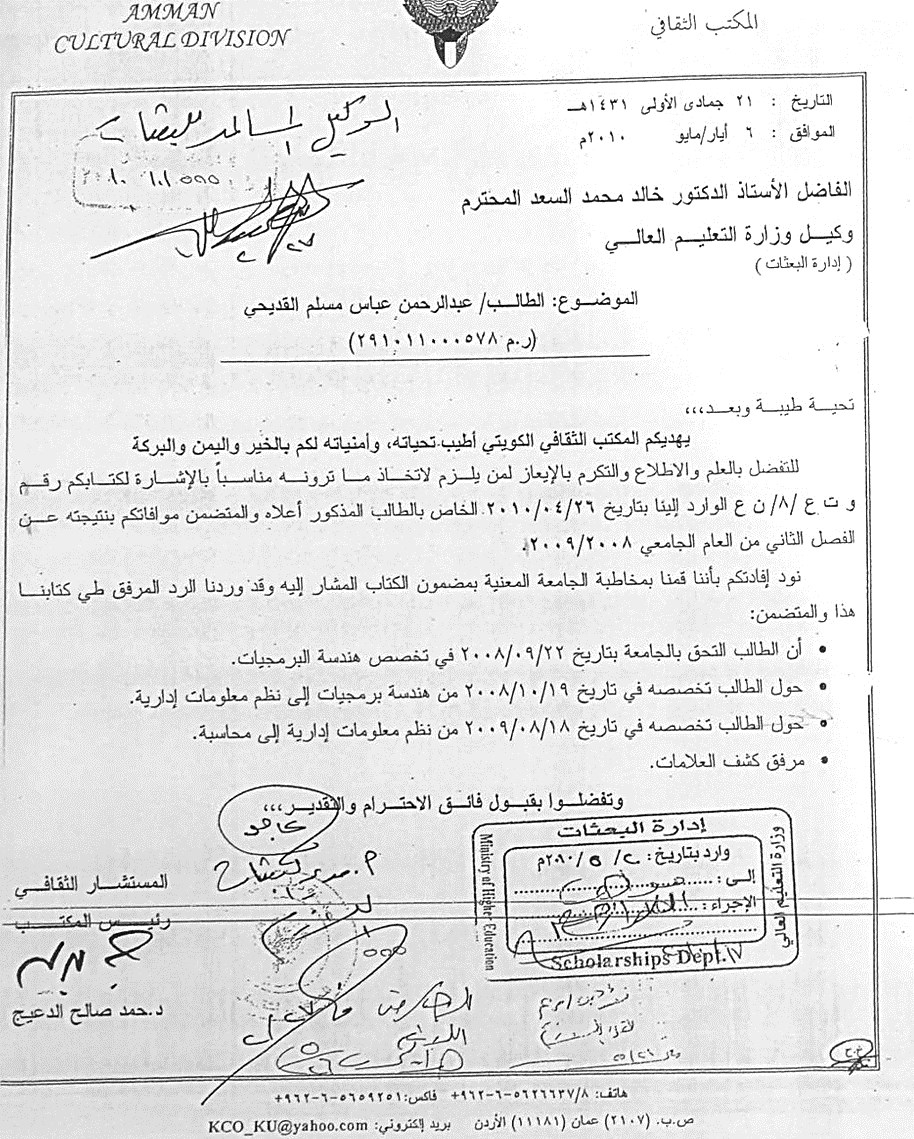 AMMAN
CULTURAL DIVISION
المكتب الثقافي
التاريخ : ٢١ جمادى الأولى ١٤٣١هـ
الموافق : ٦ أيار/مايو ٢٠١٠م
الوكيل المساعد للبعثات
الفاضل الأستاذ الدكتور خالد محمد السعد المحترم
وكيل وزارة التعليم العالي
(إدارة البعثات)
الموضوع: الطالب/ عبدالرحمن عباس مسلم القديحي
(ر.م ٢٩١٠١١٠٠٠٥٧٨)
تحية طيبة وبعد،،،
يهديكم المكتب الثقافي الكويتي أطيب تحياته، وأمنياته لكم بالخير واليمن والبركة
للتفضل بالعلم والاطلاع والتكرم بالإيعاز لمن يلزم لاتخاذ ما ترونه مناسباً بالإشارة لكتابكم رقم
و ت ع /٨/ ن ع الوارد إلينا بتاريخ ٢٠١٠/٠٤/٢٦ الخاص بالطالب المذكور أعلاه والمتضمن موافاتكم بنتيجته عن
الفصل الثاني من العام الجامعي ٢٠٠٩/٢٠٠٨.
نود إفادتكم بأننا قمنا بمخاطبة الجامعة المعنية بمضمون الكتاب المشار إليه وقد وردنا الرد المرفق طي كتابنا
هذا والمتضمن:
• أن الطالب التحق بالجامعة بتاريخ ٢٠٠٨/٠٩/٢٢ في تخصص هندسة البرمجيات.
• حول الطالب تخصصه في تاريخ ٢٠٠٨/١٠/١٩ من هندسة برمجيات إلى نظم معلومات إدارية.
• حول الطالب تخصصه في تاريخ ٢٠٠٩/٠٨/١٨ من نظم معلومات إدارية إلى محاسبة.
• مرفق كشف العلامات.
وتفضلوا بقبول فائق الاحترام والتقدير،،،
عاجل
إدارة البعثات
وارد بتاريخ:
الى:
الإجراء:
Scholarships Dept.
Ministry of Higher Education
وزارة التعليم العالي
المستشار الثقافي
رئيس المكتب
د.حمد صالح الدعيج
هاتف: ٨/٥٦٢٦٦٣٧-٦-٩٦٢+ فاكس: ٥٦٥٩٢٥١-٦-٩٦٢+
ص.ب. (٢١٠٧) عمان (١١١٨١) الأردن بريد إلكتروني: KCO_KU@yahoo.com